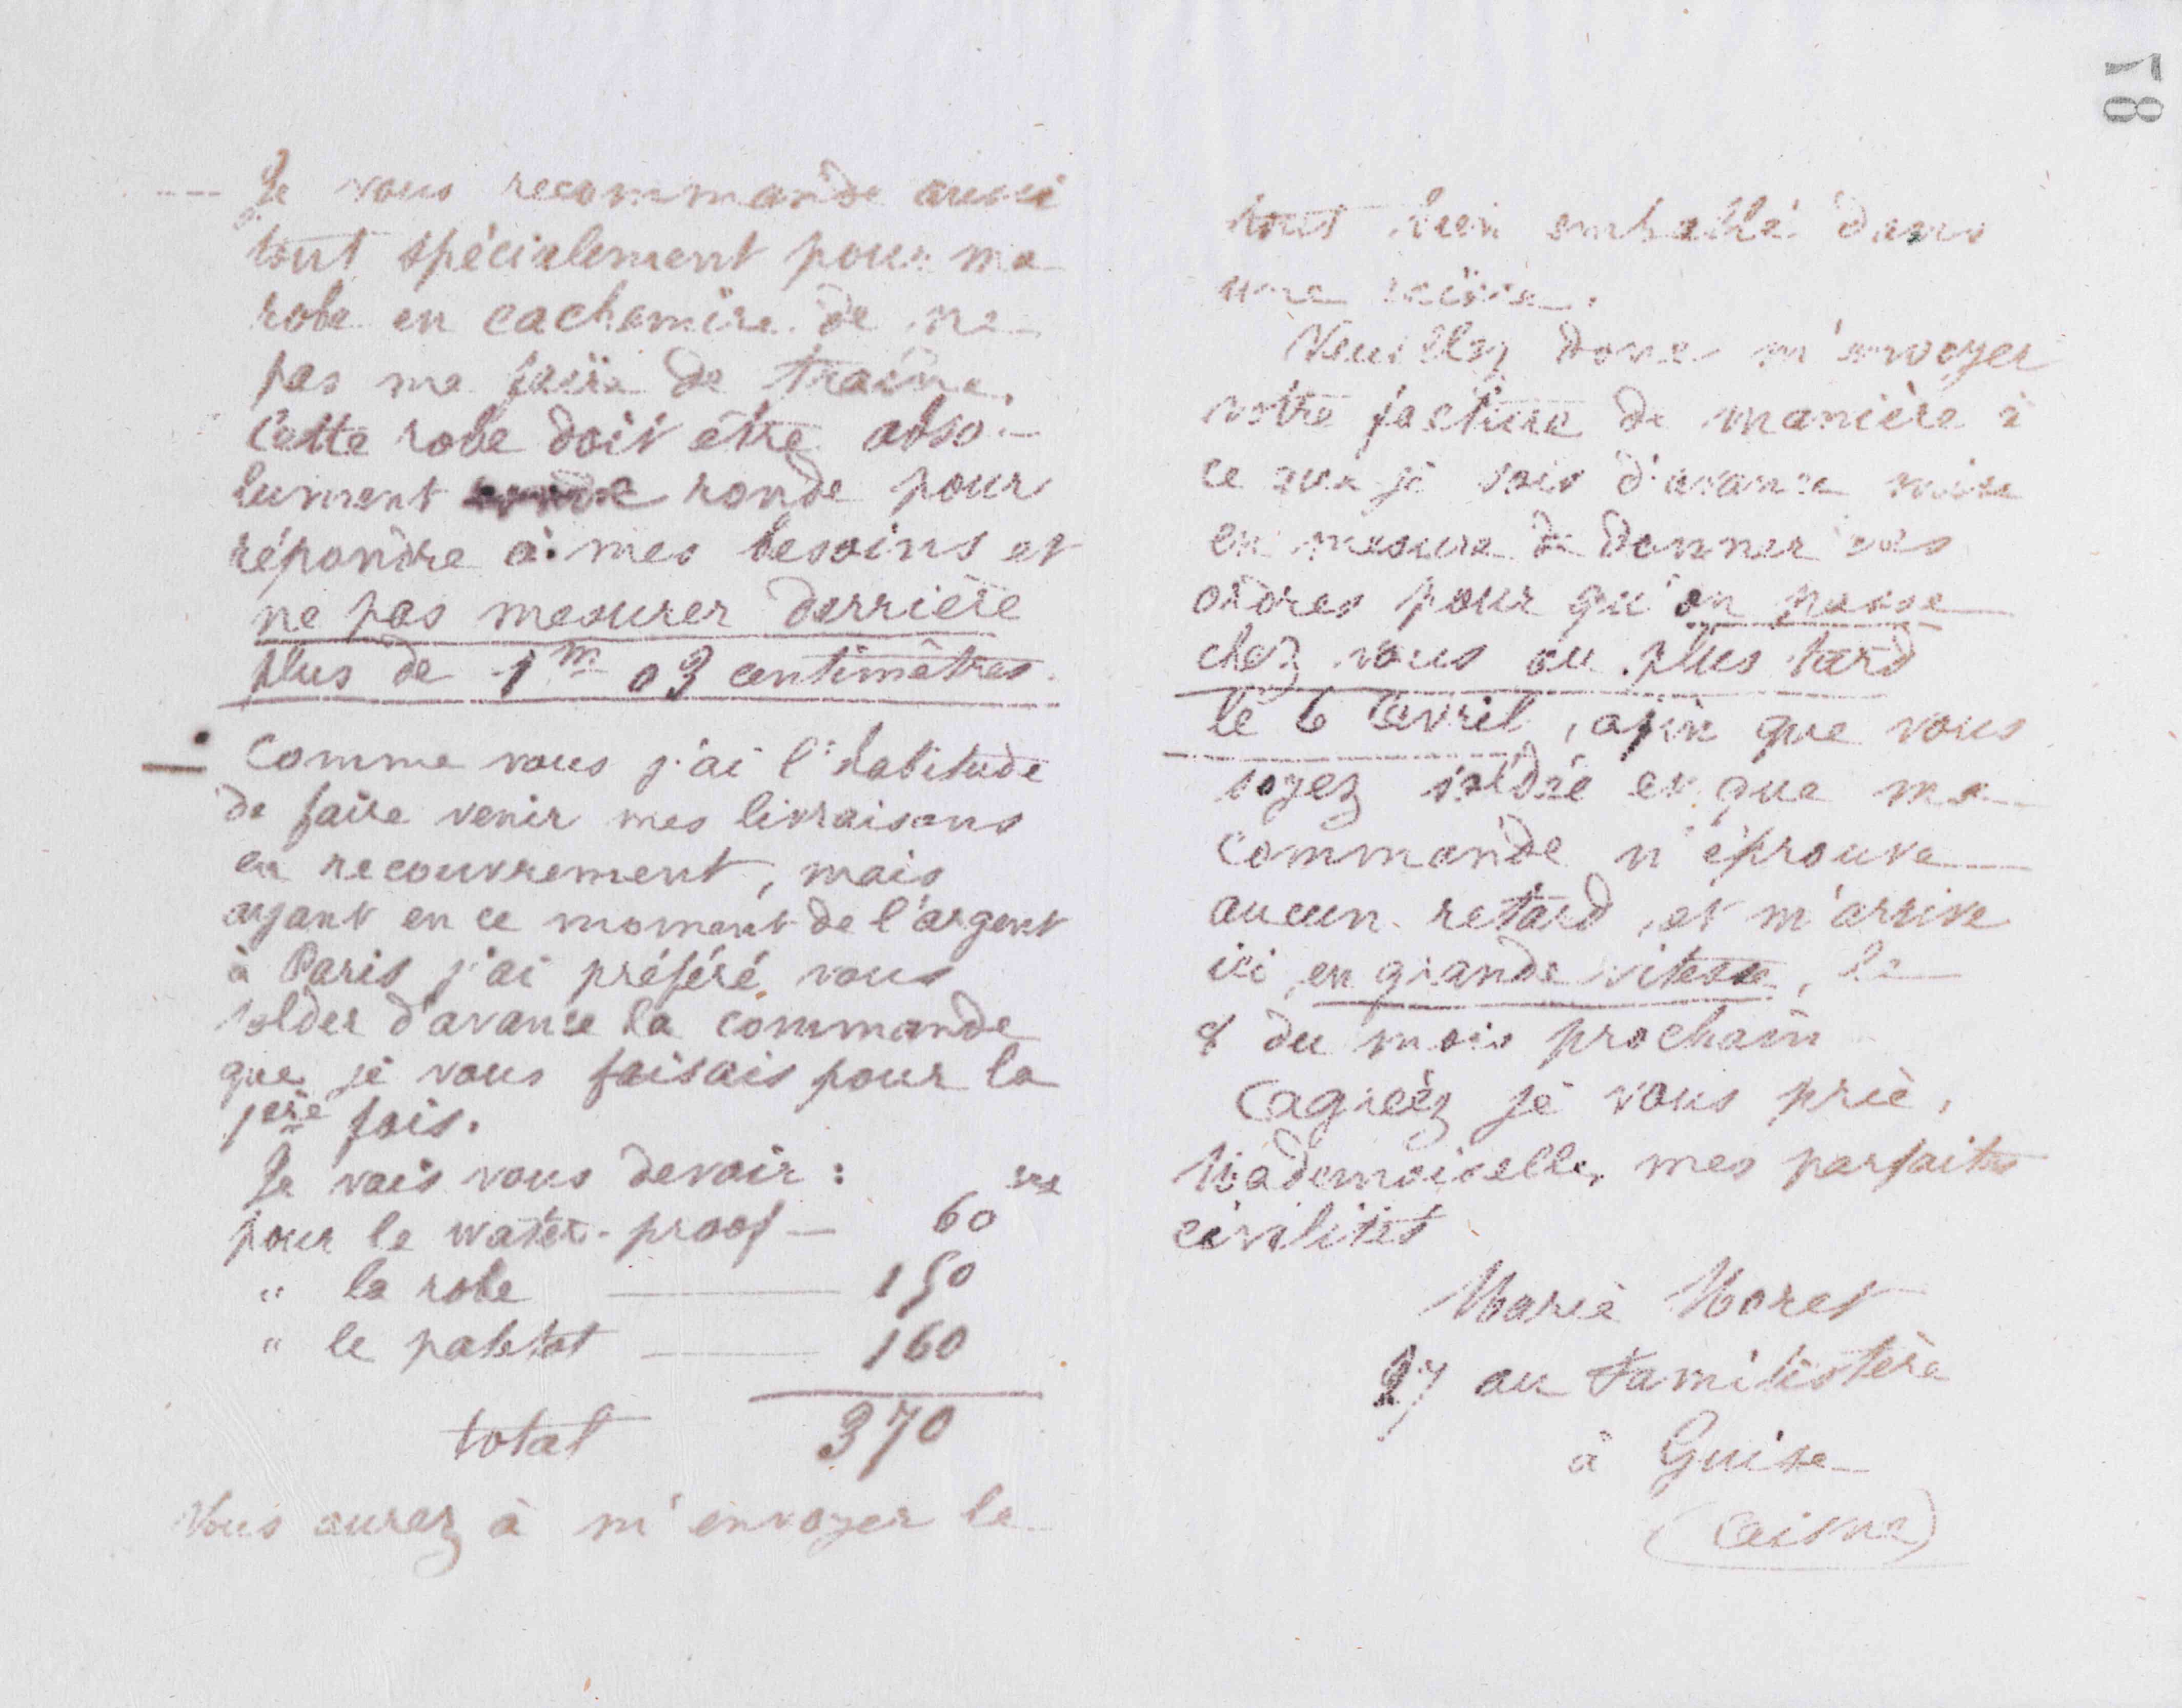 Je vous recommande aussi
tout spécialement pour ma
robe en cachemire de ne
pas me faire de traîne.
Cette robe doit être abso-
lument ronde pour
répondre à mes besoins et
ne pas mesurer derrière
plus de 1m 03 centimètres.
Comme vous j'ai l'habitude
de faire venir mes livraisons
en recouvrement, mais
ayant en ce moment de l'argent
à Paris j'ai préféré vous
solder d'avance la commande
que je vous faisais pour la
1ère fois.
Je vais vous devoir :
pour le water-proof — 60
" la robe — 150
" le paletot — 160
total 370
Vous aurez à m'envoyer le
tout bien emballé dans
une caisse.
Veuillez donc m'envoyer
votre facture de manière à
ce que je sois d'avance mise
en mesure de donner mes
ordres pour qu'on passe
chez vous au plus tard
le 6 avril, afin que vous
soyez soldée et que ma
commande n'éprouve
aucun retard, et m'arrive
ici en grande vitesse, le
8 du mois prochain
Agréez je vous prie,
Mademoiselle, mes parfaites
civilités
Marie Moret
27 au Familistère
à Guise
(Aisne)
78